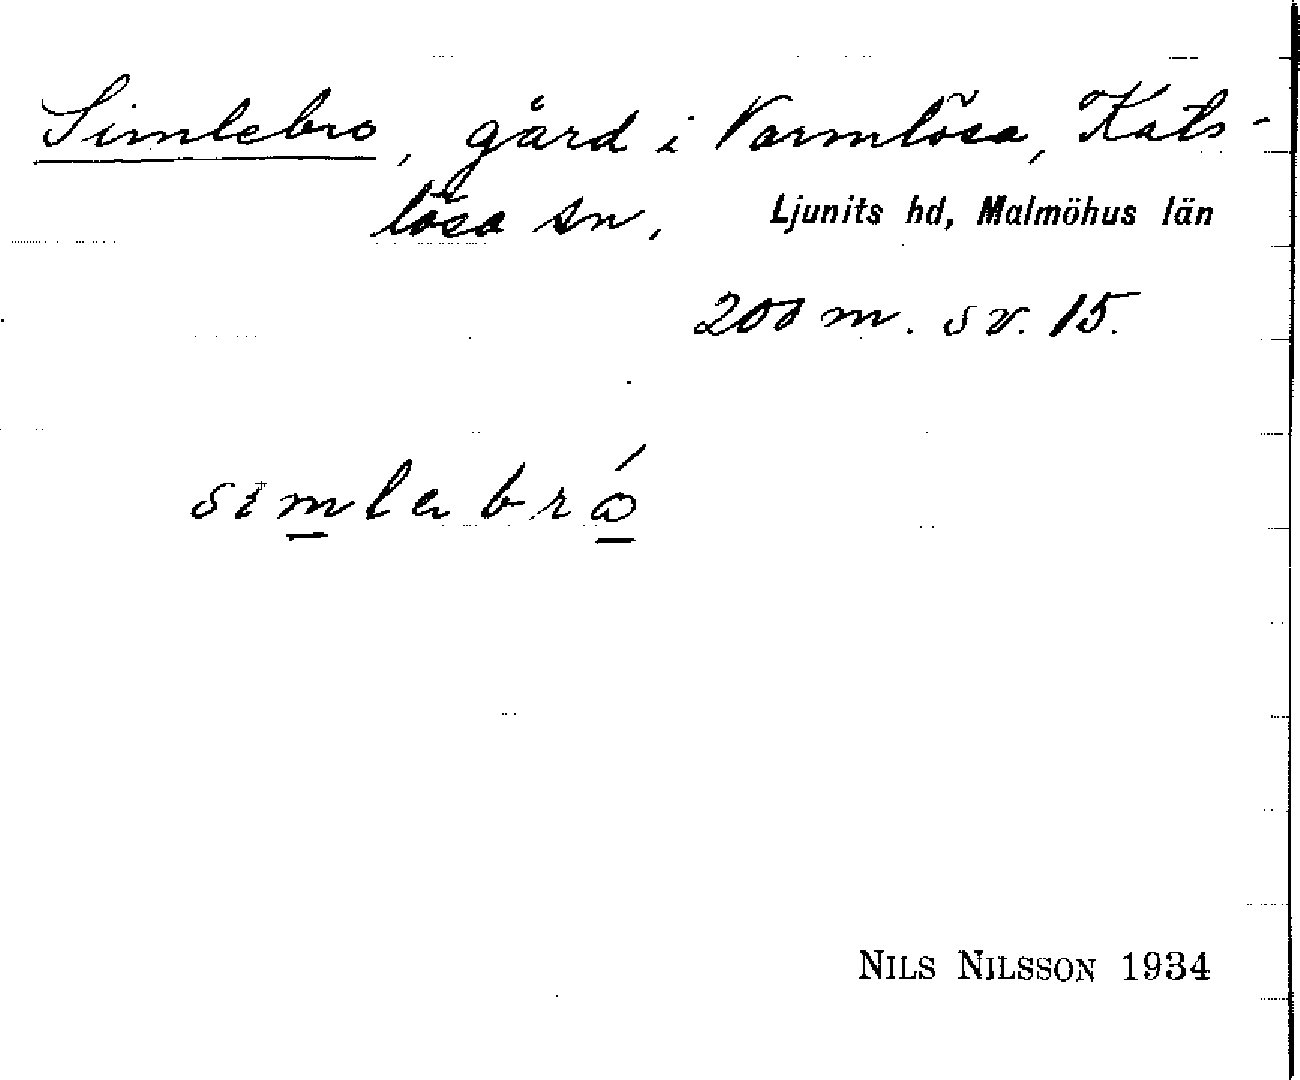 Simlebro, gård i Varmlösa, Kats-
lösa sn, Ljunits hd, Malmöhus län
200 m. sv. 15.
simlabró
NILS NILSSON 1934